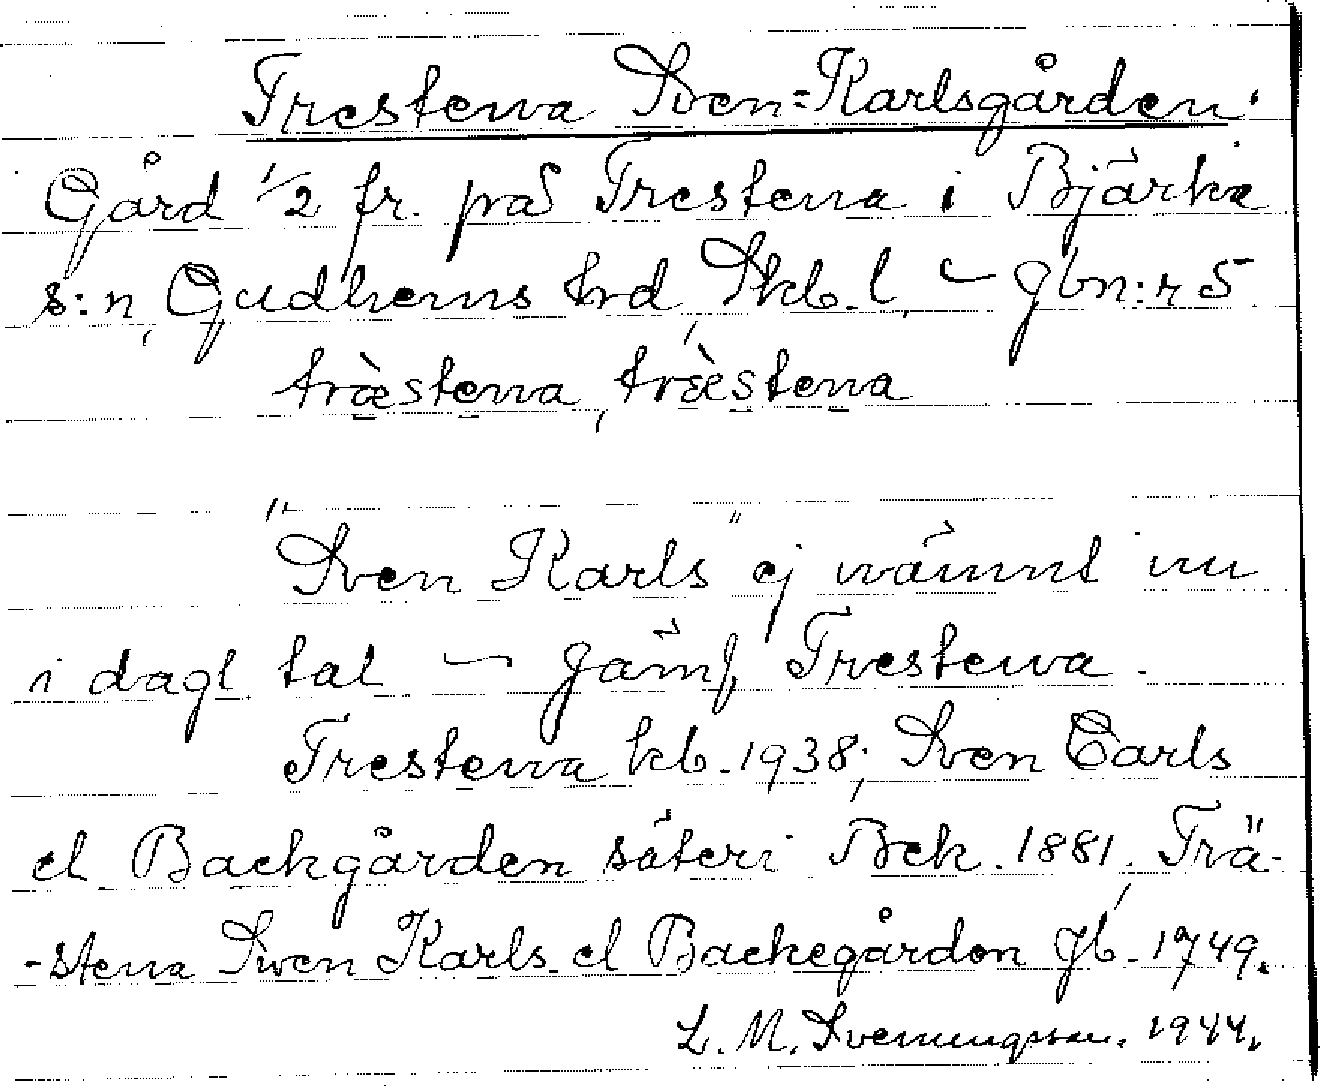 Trestena Sven=Karlsgården.
Gård 1/2 fr. på Trestena i Bjärka
s:n, Gudhems hrd, Skb. l, – gbn:r 5
træ̀stena, træ̀stena
"Sven Karls" ej nämnt nu
i dagl. tal – Jämf. Trestena.
Trestena kb. 1938; Sven Carls
el. Backgården säteri Bck. 1881, Trä-
-stena Swen Karls el Backegården Jb. 1749.
L. M. Svenungsson. 1944.